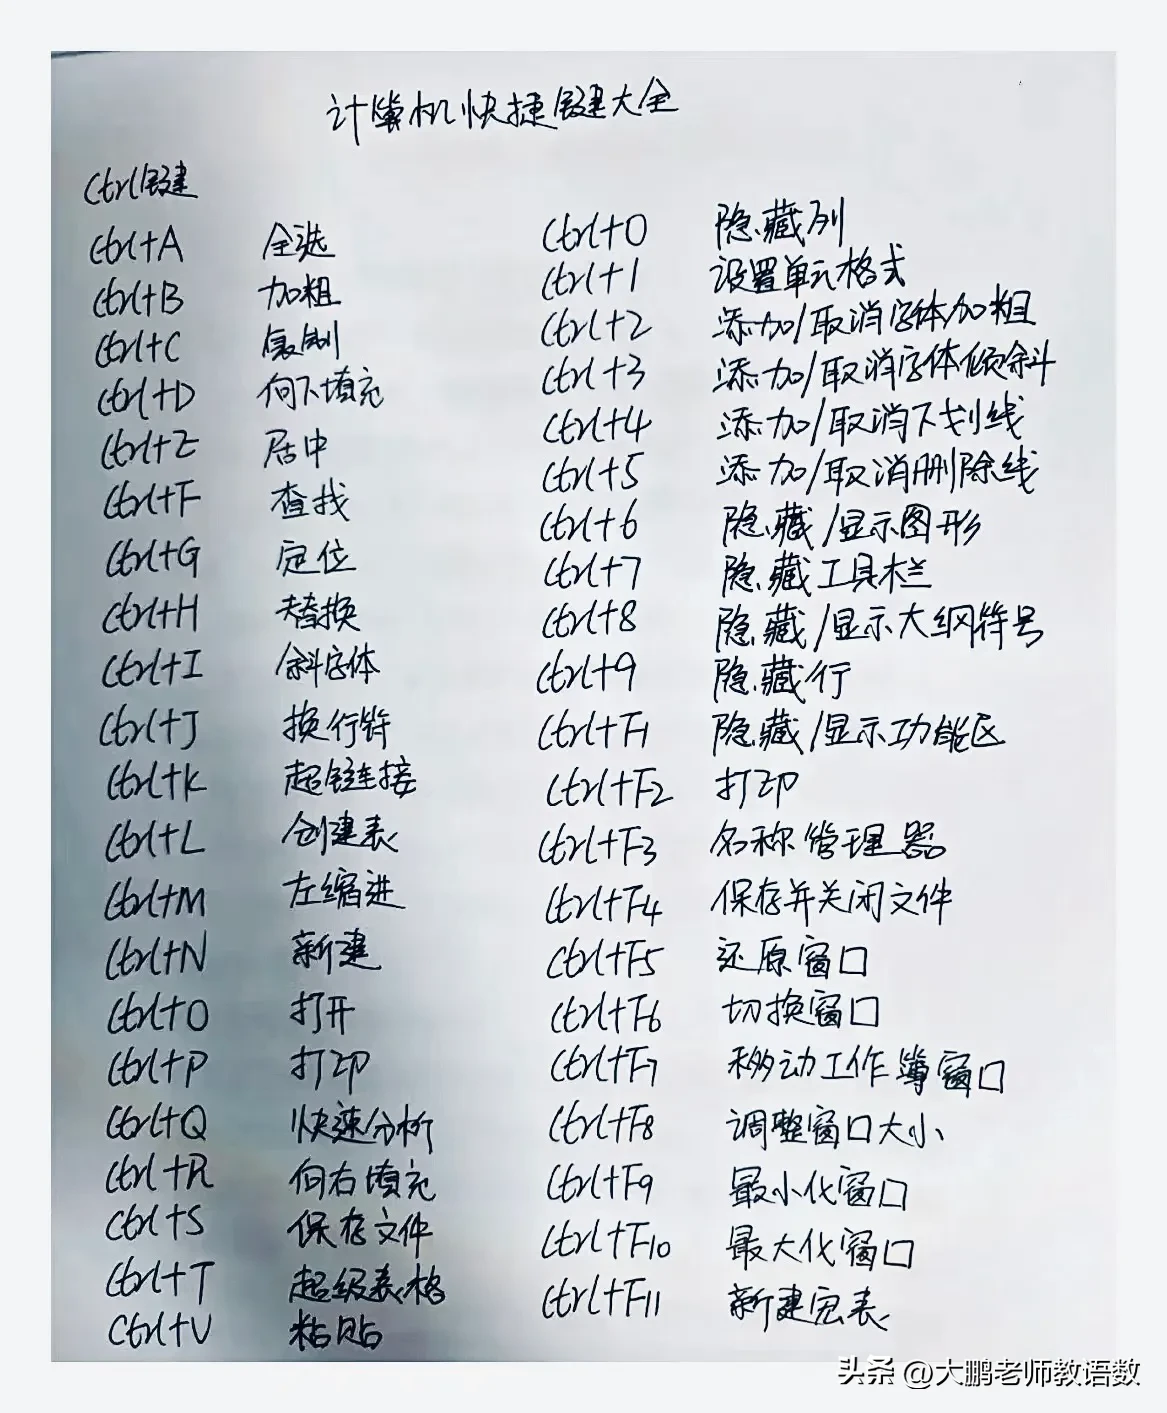 计算机快捷键大全
Ctrl键
Ctrl+A 全选
Ctrl+B 加粗
Ctrl+C 复制
Ctrl+D 向下填充
Ctrl+E 居中
Ctrl+F 查找
Ctrl+G 定位
Ctrl+H 替换
Ctrl+I 斜字体
Ctrl+J 换行符
Ctrl+K 超链接
Ctrl+L 创建表
Ctrl+M 左缩进
Ctrl+N 新建
Ctrl+O 打开
Ctrl+P 打印
Ctrl+Q 快速分析
Ctrl+R 向右填充
Ctrl+S 保存文件
Ctrl+T 超级表格
Ctrl+V 粘贴
Ctrl+0 隐藏列
Ctrl+1 设置单元格式
Ctrl+2 添加/取消字体加粗
Ctrl+3 添加/取消字体倾斜
Ctrl+4 添加/取消下划线
Ctrl+5 添加/取消删除线
Ctrl+6 隐藏/显示图形
Ctrl+7 隐藏工具栏
Ctrl+8 隐藏/显示大纲符号
Ctrl+9 隐藏行
Ctrl+F1 隐藏/显示功能区
Ctrl+F2 打印
Ctrl+F3 名称管理器
Ctrl+F4 保存并关闭文件
Ctrl+F5 还原窗口
Ctrl+F6 切换窗口
Ctrl+F7 移动工作簿窗口
Ctrl+F8 调整窗口大小
Ctrl+F9 最小化窗口
Ctrl+F10 最大化窗口
Ctrl+F11 新建宏表
头条 @大鹏老师教语数